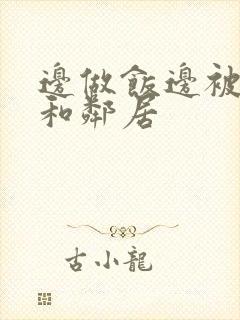 邊做飯邊被
和鄰居
古小龍